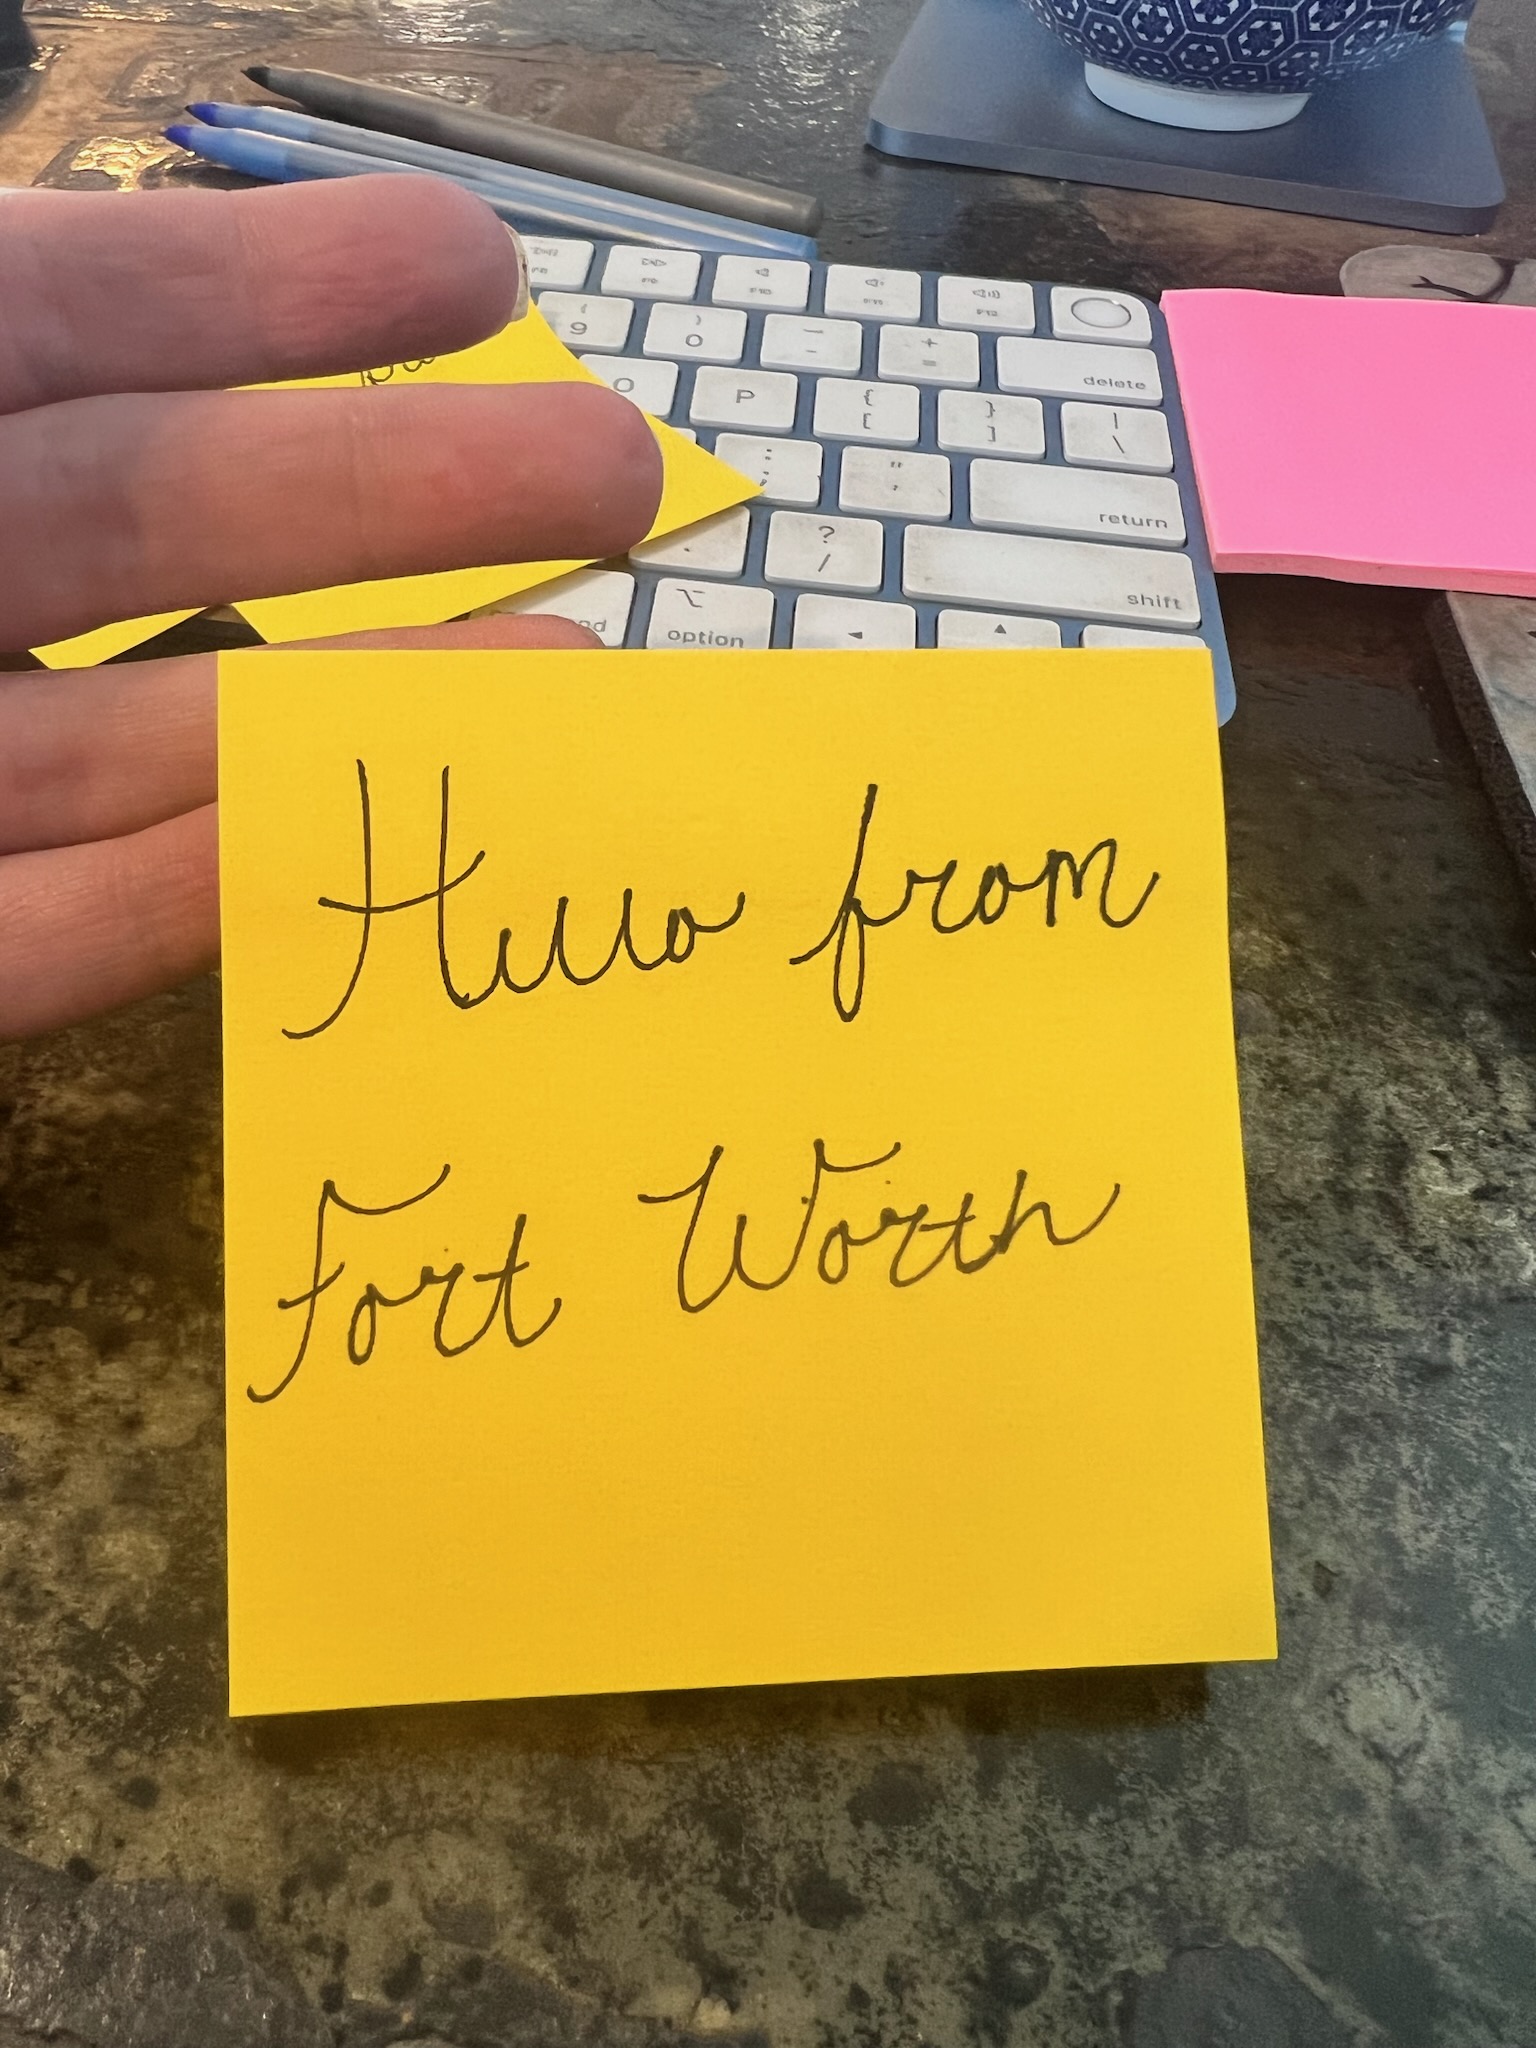 F9
F10
F11
F12
(
9
)
0
_
-
+
=
delete
O
P
{
[
}
]
|
\
:
;
"
'
return
.
?
/
shift
option
Hello from
Fort Worth